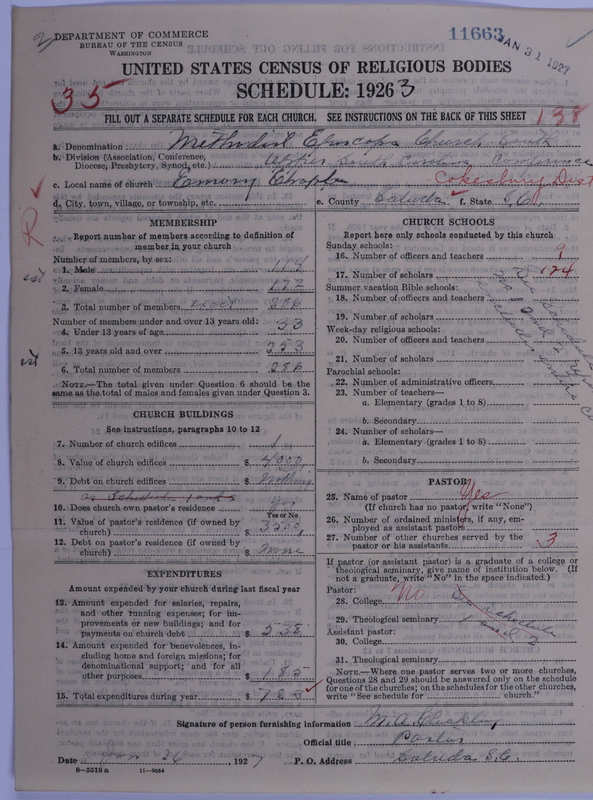 2
DEPARTMENT OF COMMERCE
BUREAU OF THE CENSUS
WASHINGTON
11663
JAN 31 1927
UNITED STATES CENSUS OF RELIGIOUS BODIES
SCHEDULE: 1926 3
35
FILL OUT A SEPARATE SCHEDULE FOR EACH CHURCH. SEE INSTRUCTIONS ON THE BACK OF THIS SHEET
138
a. Denomination Methodist Episcopa Church South
b. Division (Association, Conference, Diocese, Presbytery, Synod, etc.) Upper South Carolina Conference
Cokesbury Dist
c. Local name of church Emory Chaple
d. City, town, village, or township, etc.
e. County Saluda f. State S.C.
R
MEMBERSHIP
Report number of members according to definition of member in your church
Number of members, by sex:
1. Male
est
2. Female
3. Total number of members 286
Number of members under and over 13 years old:
4. Under 13 years of age 33
est
5. 13 years old and over 253
6. Total number of members 286
NOTE.—The total given under Question 6 should be the same as the total of males and females given under Question 3.
CHURCH BUILDINGS
See instructions, paragraphs 10 to 12
7. Number of church edifices 1
8. Value of church edifices $ 4000,
9. Debt on church edifices $ Nothing
10. Does church own pastor's residence Yes
Yes or No
11. Value of pastor's residence (if owned by church) $ 3200,
12. Debt on pastor's residence (if owned by church) $ None
EXPENDITURES
Amount expended by your church during last fiscal year
13. Amount expended for salaries, repairs, and other running expenses; for improvements or new buildings; and for payments on church debt $ 538
14. Amount expended for benevolences, including home and foreign missions; for denominational support; and for all other purposes $ 185
15. Total expenditures during year $
CHURCH SCHOOLS
Report here only schools conducted by this church
Sunday schools:
16. Number of officers and teachers 9
17. Number of scholars 124
Summer vacation Bible schools:
18. Number of officers and teachers
19. Number of scholars
Week-day religious schools:
20. Number of officers and teachers
21. Number of scholars
Parochial schools:
22. Number of administrative officers
23. Number of teachers—
a. Elementary (grades 1 to 8)
b. Secondary
24. Number of scholars—
a. Elementary (grades 1 to 8)
b. Secondary
PASTOR
25. Name of pastor Yes
(If church has no pastor, write "None")
26. Number of ordained ministers, if any, employed as assistant pastors
27. Number of other churches served by the pastor or his assistants 3
If pastor (or assistant pastor) is a graduate of a college or theological seminary, give name of institution below. (If not a graduate, write "No" in the space indicated.)
Pastor:
28. College No
29. Theological seminary
Assistant pastor:
30. College
31. Theological seminary
NOTE.—Where one pastor serves two or more churches, Questions 28 and 29 should be answered only on the schedule for one of the churches; on the schedules for the other churches, write "See schedule for church."
Signature of person furnishing information
Official title Pastor
Date Jan 26, 1927 P. O. Address Saluda S.C.
8—5518 a 11—9054